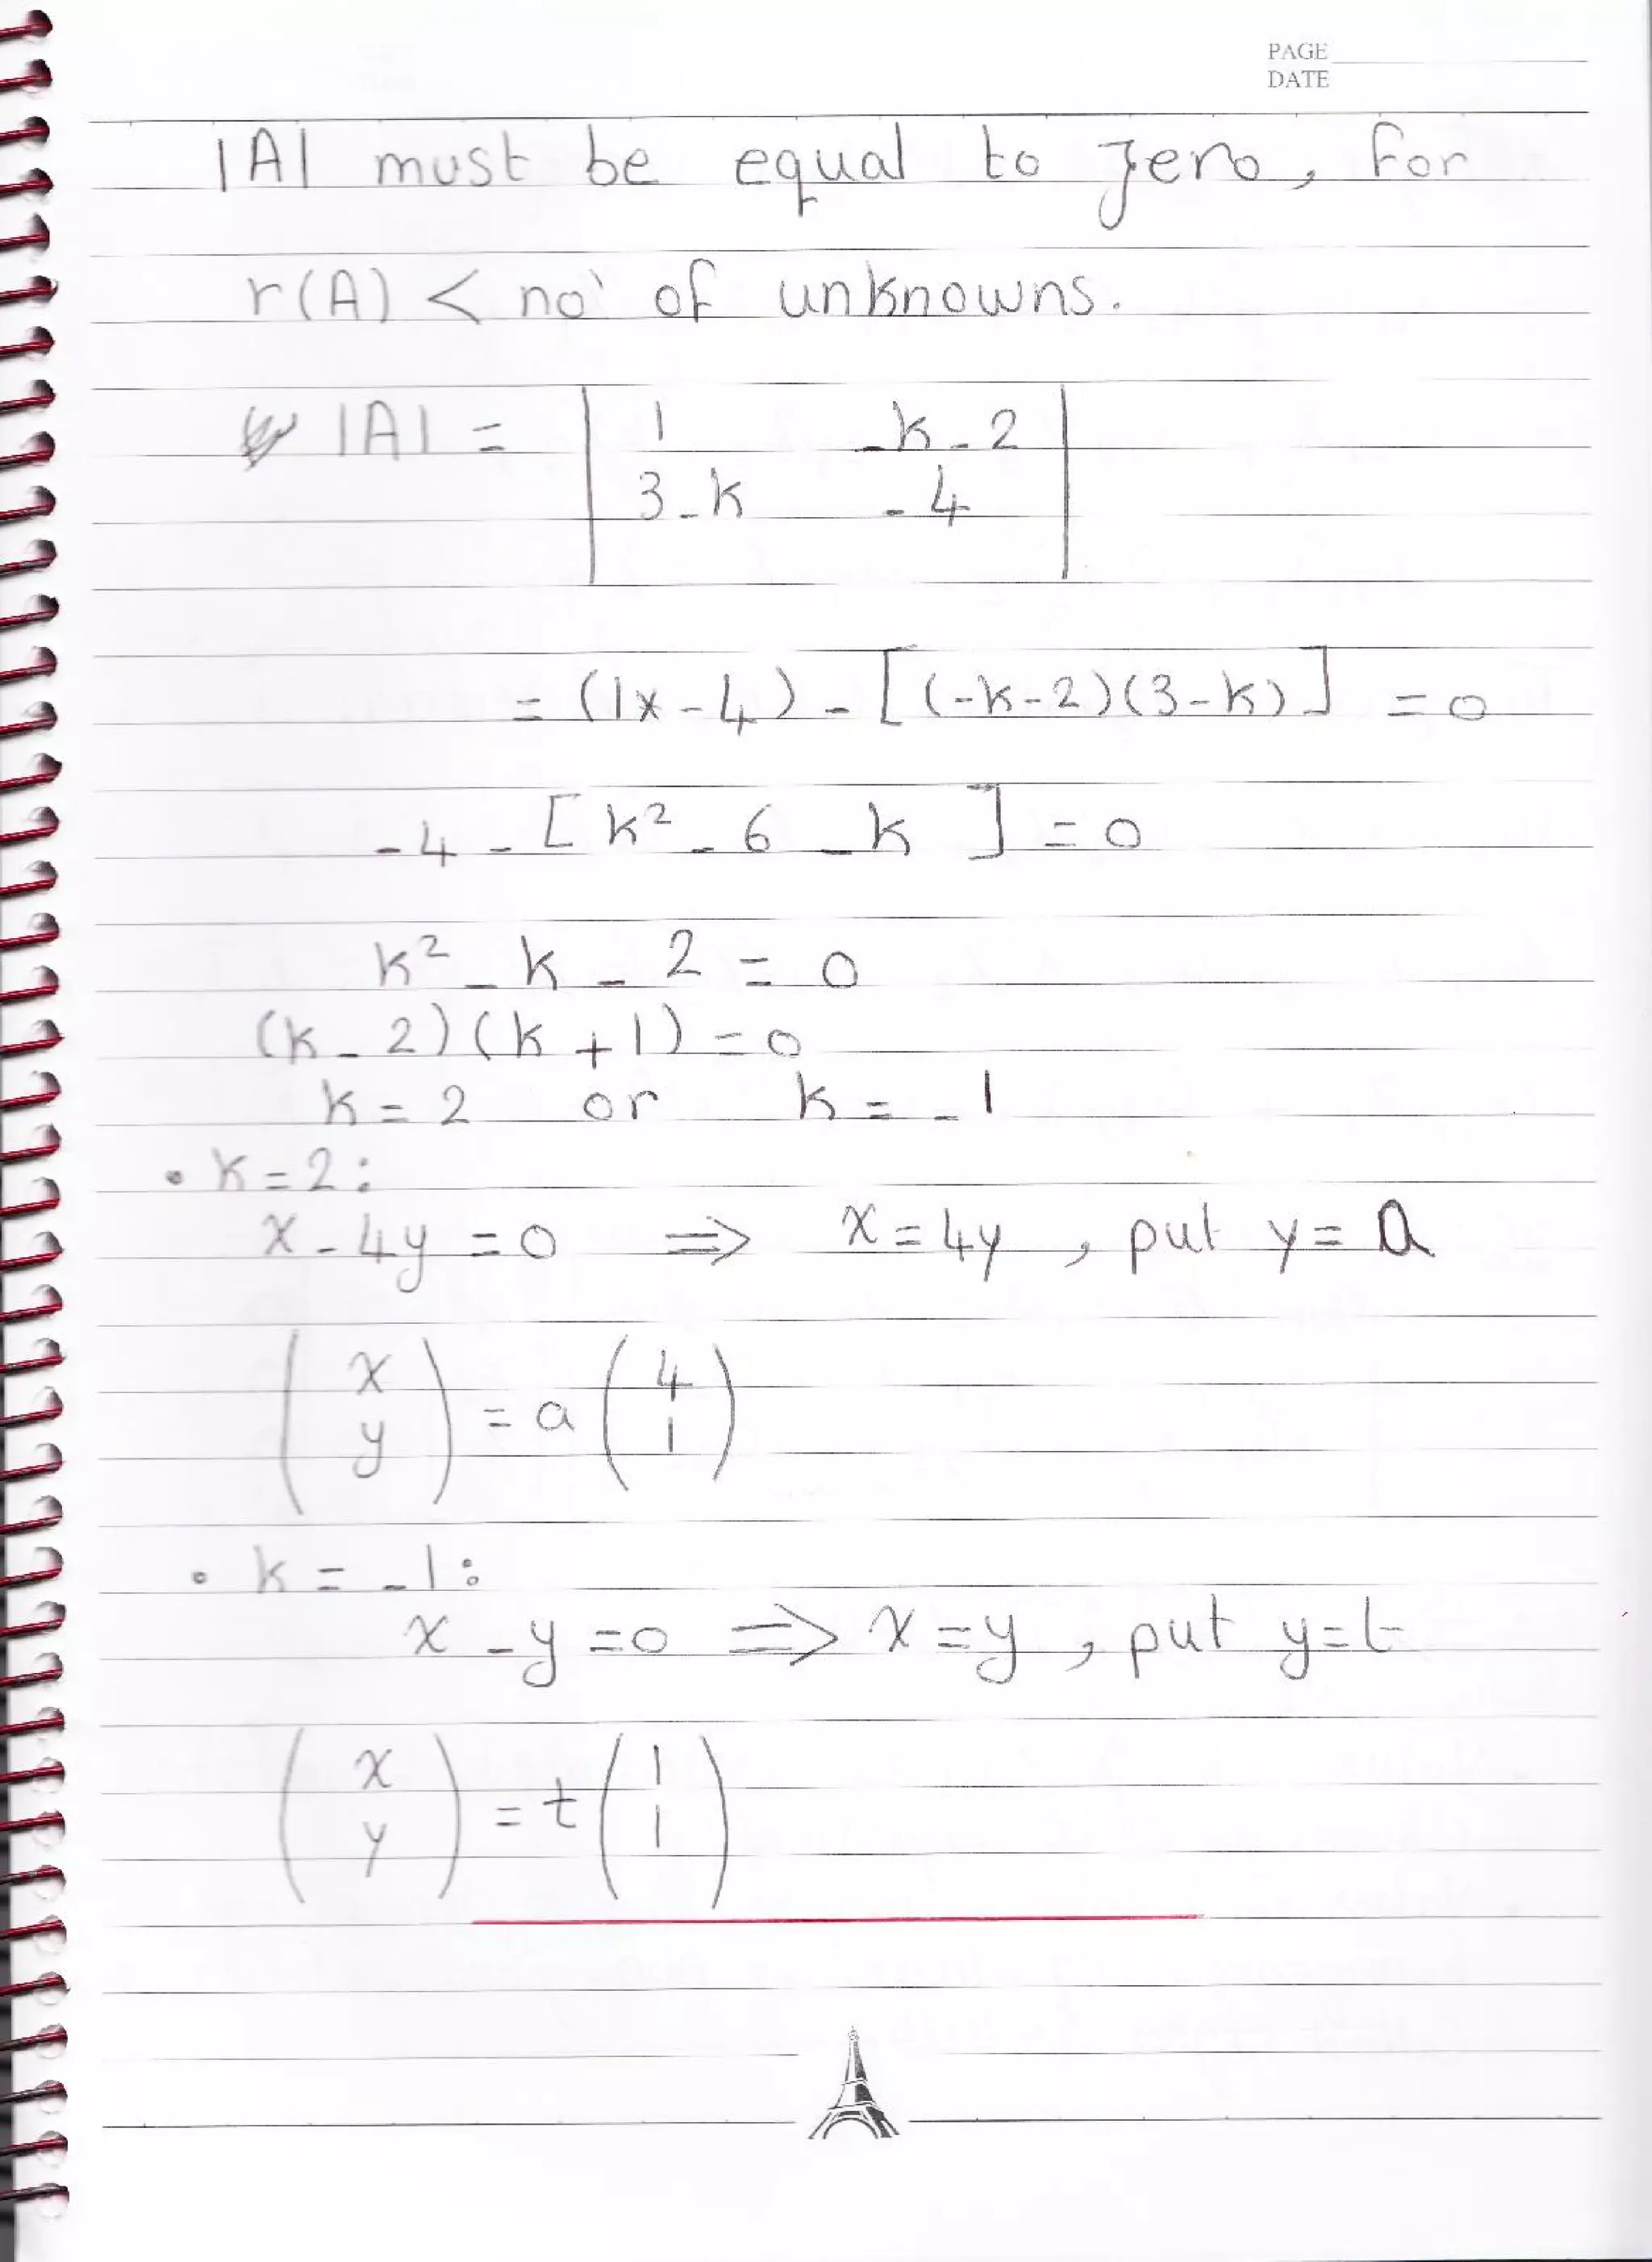 PAGE
DATE
|A| must be equal to zero, for
r(A) < no of unknowns.
|A| = | 1 -k-2 |
| 3-k -4 |
= (1x-4) - [(-k-2)(3-k)] = 0
-4 - [k² - 6 - k ] = 0
k² - k - 2 = 0
(k - 2)(k + 1) = 0
k = 2 or k = -1
• k = 2 :
x - 4y = 0 ⇒ x = 4y , put y = a
( x ) = a ( 4 )
( y ) ( 1 )
• k = -1 :
x - y = 0 ⇒ x = y , put y = t
( x ) = t ( 1 )
( y ) ( 1 )